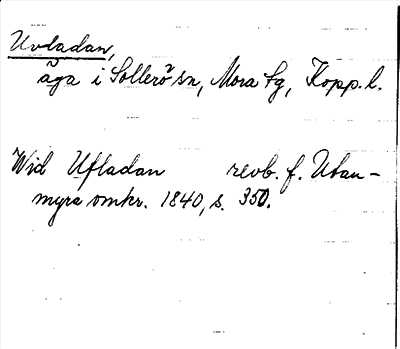 Uvladan,
äga i Sollerö sn, Mora tg, Kopp. l.
Wid Ufladan revb. f. Utan-
myra omkr. 1840, s. 350.